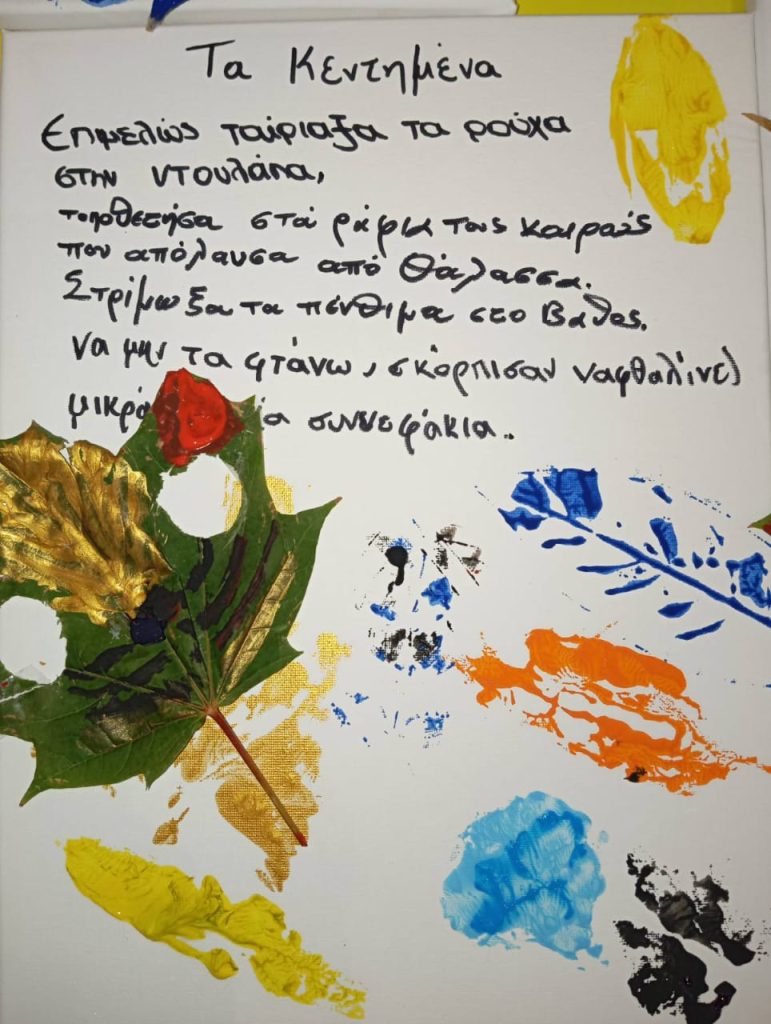 Τα Κεντημένα
Επιμελώς ταίριαξα τα ρούχα
στην ντουλάπα,
τοποθετήσα στα ράφια τους καιρούς
που απόλαυσα από θάλασσα.
Στρίμωξα τα πένθιμα στο βάθος.
να μην τα φτάνω, σκόρπισαν ναφθαλίνες
μικρά συννεφάκια..